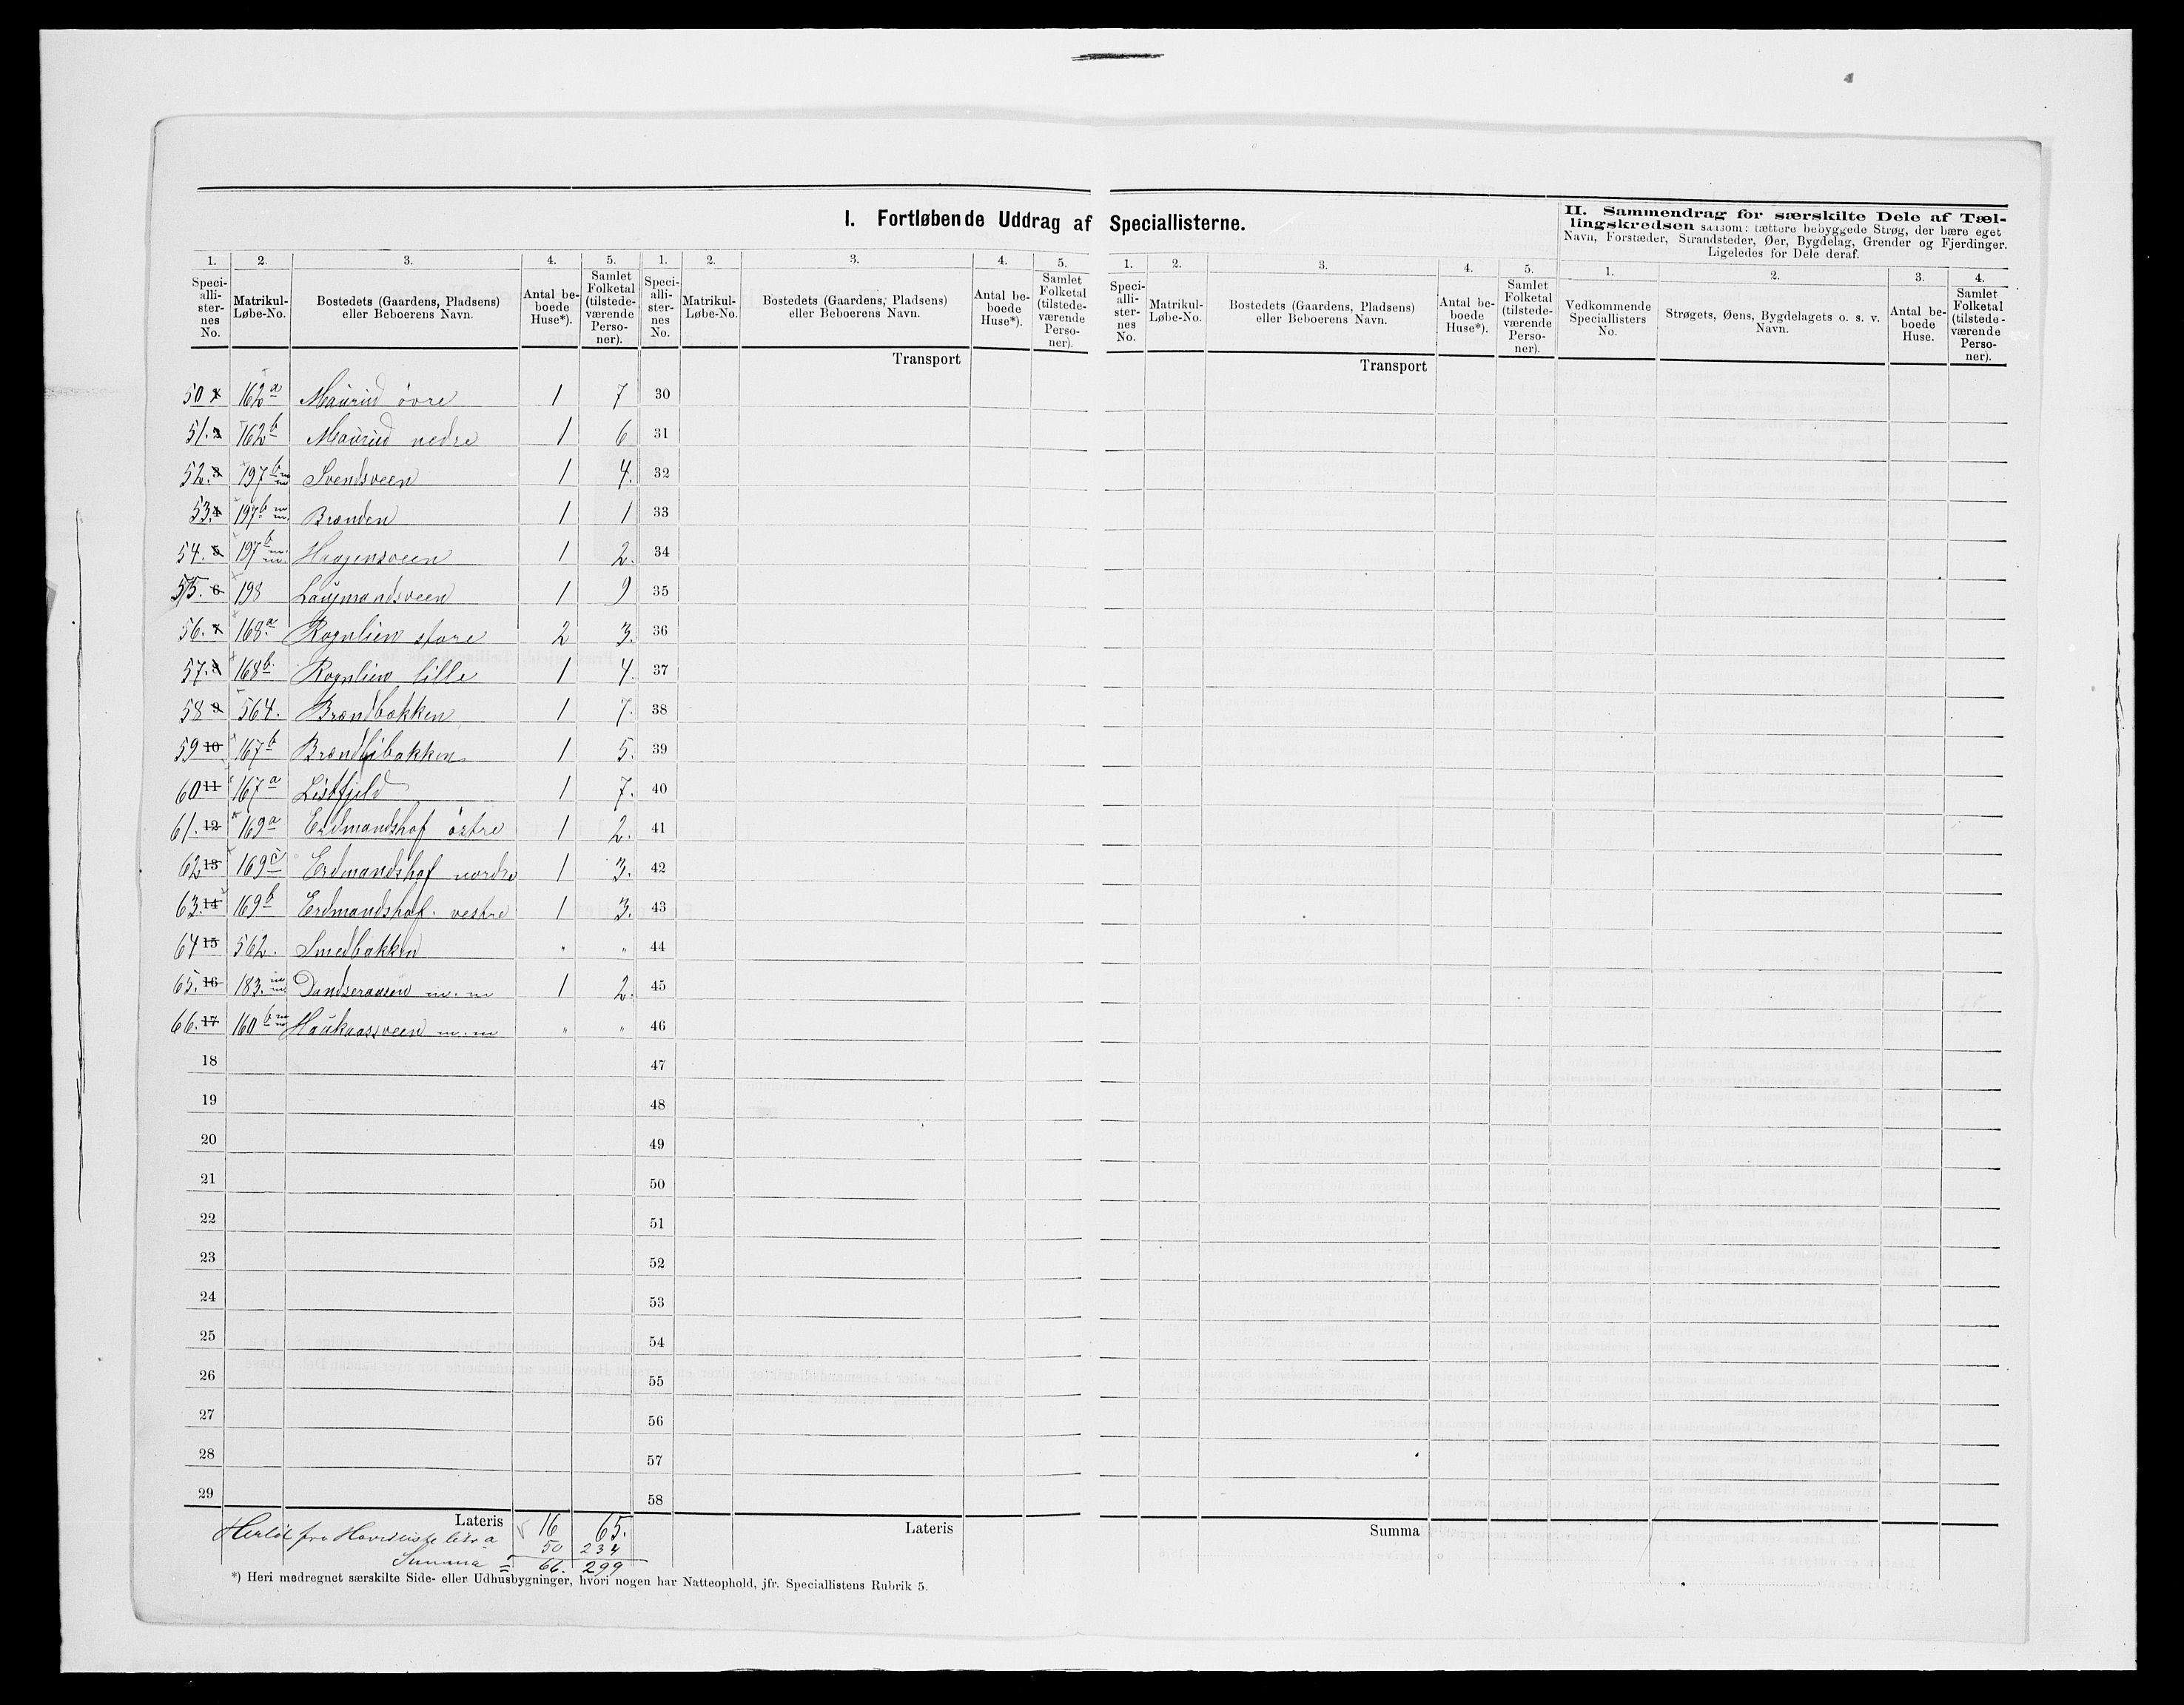 I. Fortløbende Uddrag af Speciallisterne.
II. Sammendrag for særskilte Dele af Tæl-
lingskredsen saasom: tættere bebyggede Strøg, der bære eget
Navn, Forstæder, Strandsteder, Øer, Bygdelag, Grender og Fjerdinger.
Ligeledes for Dele deraf.
1. 2. 3. 4. 5. 1. 2. 3. 4. 5. 1. 2. 3. 4. 5. 1. 2. 3. 4.
Speci-
alli-
ster-
nes
No.
Matrikul-
Løbe-No.
Bostedets (Gaardens, Pladsens)
eller Beboerens Navn.
Antal be-
boede
Huse*).
Samlet
Folketal
(tilstede-
værende
Perso-
ner).
Speci-
alli-
ster-
nes
No.
Matrikul-
Løbe-No.
Bostedets (Gaardens, Pladsens)
eller Beboerens Navn.
Antal be-
boede
Huse*).
Samlet
Folketal
(tilstede-
værende
Perso-
ner).
Speci-
alli-
ster-
nes
No.
Matrikul-
Løbe-No.
Bostedets (Gaardens, Pladsens)
eller Beboerens Navn.
Antal be-
boede
Huse*).
Samlet
Folketal
(tilstede-
værende
Perso-
ner).
Vedkommende
Speciallisters
No.
Strøgets, Øens, Bygdelagets o. s. v.
Navn.
Antal be-
boede
Huse.
Samlet
Folketal
(tilstede-
værende
Perso-
ner).
Transport Transport
50 1 162a Maurud övre 1 7 30
51. 2 162b Maurud nedre 1 6 31
52. 3 197b m m Svendsveen 1 4. 32
53. 4 197b m m. Brænden 1 1 33
54. 5 197b m. m. Haagensveen 1 2. 34
55. 6 198 Laugmandsveen 1 9 35
56. 7 168.a Rognlien store 2 3. 36
57. 8 168b. Rognlien lille 1 4. 37
58 9 564. Brændbakken 1 7. 38
59 10 167b Brændlibakken 1 5. 39
60 11 167a Listfjeld 1 7. 40
61. 12 169a Erdmandshof östre 1 2. 41
62 13 169c Erdmandshof nordre 1 3. 42
63. 14 169b Erdmandshof. vestre 1 3. 43
64 15 562. Smedbakken " " 44
65. 16 183. m m. Dandseraasen m. m 1 2. 45
66. 17 160b m m Haukaasveen m. m " " 46
18 47
19 48
20 49
21 50
22 51
23 52
24 53
25 54
26 55
27 56
28 57
29 58
Lateris 16 65. Lateris Summa
Hertil fra Hovedliste litr. a 50 234
Summa = 66. 299
*) Heri medregnet særskilte Side- eller Udhusbygninger, hvori nogen har Natteophold, jfr. Speciallistens Rubrik 5.